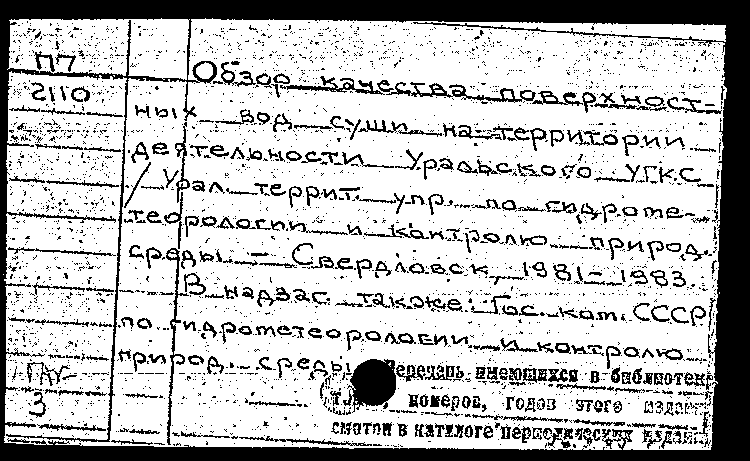 П7
2110
Обзор качества поверхност-
ных вод суши на территории
деятельности Уральского УГКС
/ Урал. террит. упр. по гидроме-
теорологии и контролю природ.
среды. – Свердловск, 1981–1983.
В надзаг. также: Гос. ком. СССР
по гидрометеорологии и контролю
природ. среды
Перечень имеющихся в библиотек
номеров, годов этого издан
смотри в каталоге периодических издани
3